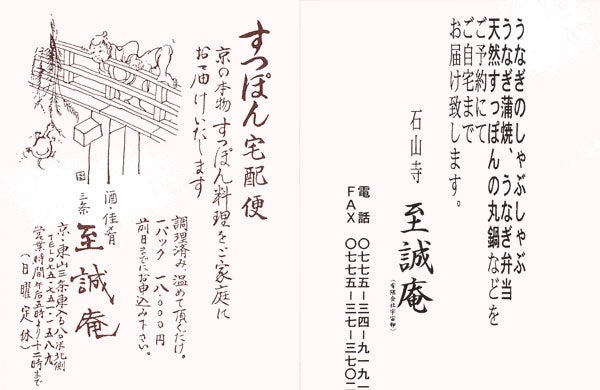 うなぎのしゃぶしゃぶ
うなぎ蒲焼、うなぎ弁当
天然すっぽんの丸鍋などを
ご予約にて
ご自宅まで
お届け致します。
石山寺 至誠庵
電話 〇七七五ー三四ー九一九一
FAX 〇七七五ー三七ー三七〇
すっぽん宅配便
京の本物すっぽん料理をご家庭に
お届けいたします
調理済み、温めて頂くだけ。
一パック 一八、〇〇〇円
前日までにお申込み下さい。
酒・佳肴
三条 至誠庵
京・東山三条東入る 北側
TEL〇七五ー七五一ー
営業時間 午后五時より十二時まで
(日曜定休)